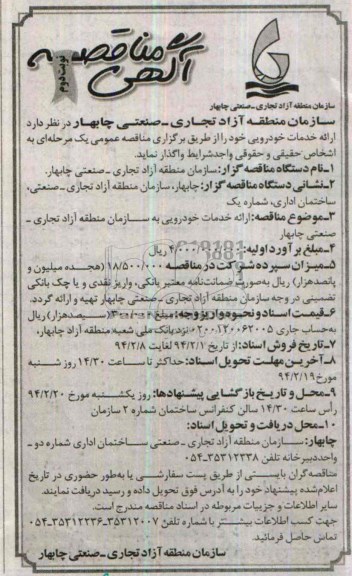 آگهی مناقصه
نوبت دوم
سازمان منطقه آزاد تجاری ـ صنعتی چابهار
سازمان منطقه آزاد تجاری ـ صنعتی چابهار در نظر دارد
ارائه خدمات خودرویی خود را از طریق برگزاری مناقصه عمومی یک مرحله‌ای به
اشخاص حقیقی و حقوقی واجدشرایط واگذار نماید.
۱ـ نام دستگاه مناقصه گزار: سازمان منطقه آزاد تجاری ـ صنعتی چابهار.
۲ـ نشانی دستگاه مناقصه گزار: چابهار، سازمان منطقه آزاد تجاری ـ صنعتی،
ساختمان اداری، شماره یک
۳ـ موضوع مناقصه: ارائه خدمات خودرویی به سازمان منطقه آزاد تجاری ـ
صنعتی چابهار
۴ـ مبلغ برآورد اولیه: ریال
۵ـ میزان سپرده شرکت در مناقصه ۱۸/۵۰۰/۰۰۰ (هجده میلیون و
پانصدهزار) ریال به‌صورت ضمانت‌نامه معتبر بانکی، واریز نقدی و یا چک بانکی
تضمینی در وجه سازمان منطقه آزاد تجاری ـ صنعتی چابهار تهیه و ارائه گردد.
۶ـ قیمت اسناد و نحوه واریز وجه: مبلغ (سیصدهزار) ریال
به‌حساب جاری نزد بانک ملی شعبه منطقه آزاد چابهار،
۷ـ تاریخ فروش اسناد: از تاریخ ۹۴/۲/۱ لغایت ۹۴/۲/۸
۸ـ آخرین مهلت تحویل اسناد: حداکثر تا ساعت ۱۴/۳۰ روز شنبه
مورخ ۹۴/۲/۱۹
۹ـ محل و تاریخ بازگشایی پیشنهادها: روز یکشنبه مورخ ۹۴/۲/۲۰
رأس ساعت ۱۴/۳۰ سالن کنفرانس ساختمان شماره ۲ سازمان
۱۰ـ محل دریافت و تحویل اسناد:
چابهار: سازمان منطقه آزاد تجاری ـ صنعتی ساختمان اداری شماره دو ـ
واحد دبیرخانه تلفن ۳۵۳۱۲۲۳۸ـ۰۵۴
مناقصه‌گران بایستی از طریق پست سفارشی یا به‌طور حضوری در تاریخ
اعلام‌شده پیشنهاد خود را به آدرس فوق تحویل داده و رسید دریافت نمایند.
سایر اطلاعات و جزییات مربوطه در اسناد مناقصه مندرج است.
جهت کسب اطلاعات بیشتر با شماره تلفن ۳۵۳۱۲۰۰۷ـ۳۵۳۱۲۲۳۶ـ۰۵۴
تماس حاصل فرمائید.
سازمان منطقه آزاد تجاری ـ صنعتی چابهار